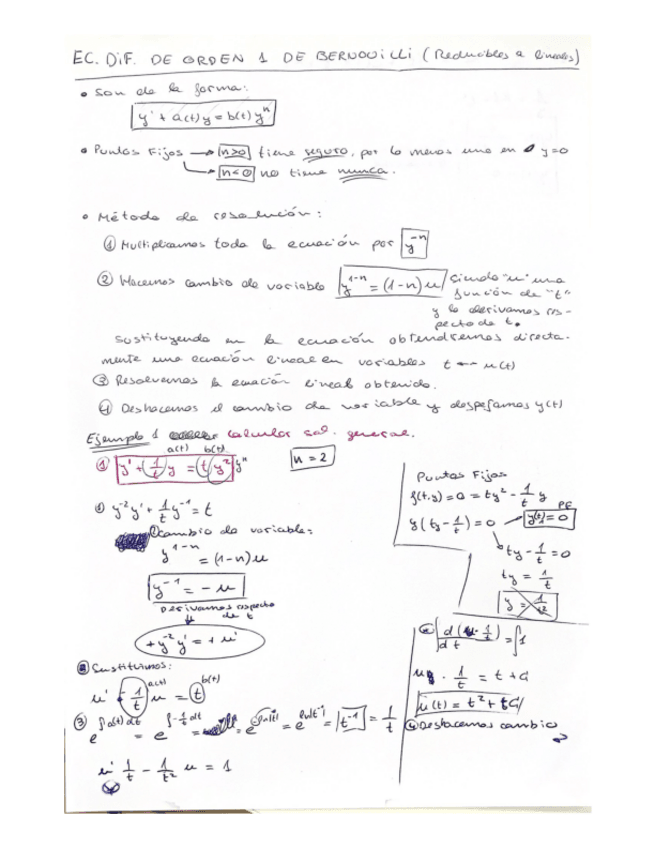 EC. DIF. DE ORDEN 1 DE BERNOUILLI (Reducibles a lineales)
• Son de la forma:
y' + a(t)y = b(t)yⁿ
• Puntos Fijos → n>0 tiene seguro, por lo menos uno en y=0
→ n<0 no tiene nunca.
• Método de resolución:
① Multiplicamos toda la ecuación por y⁻ⁿ
② Hacemos cambio de variable y¹⁻ⁿ = (1-n)u siendo "u" una
función de "t"
y lo derivamos res-
pecto de t.
Sustituyendo en la ecuación obtendremos directa-
mente una ecuación lineal en variables t ← u(t)
③ Resolvemos la ecuación lineal obtenida.
④ Deshacemos el cambio de variable y despejamos y(t)
Ejemplo 1 calcular sol. general.
a(t) b(t)
① y' + 1/t y = t y² yⁿ n = 2
① y⁻²y' + 1/t y⁻¹ = t
② cambio de variable:
y¹⁻ⁿ = (1-n)u
y⁻¹ = -u
Derivamos respecto
de t
+y⁻²y' = +u'
Sustituimos:
a(t) b(t)
u' - 1/t u = t
③ e^∫a(t)dt = e^∫-1/t dt = = e^-ln|t| = e^ln|t⁻¹| = |t⁻¹| = 1/t
u' 1/t - 1/t² u = 1
Puntos Fijos
f(t,y) = 0 = ty² - 1/t y
PF
y(ty - 1/t) = 0 → y(t) = 0
ty - 1/t = 0
ty = 1/t
y = 1/t²
d(u · 1/t)/dt = ∫1
u · 1/t = t + C
u(t) = t² + tC
④ Deshacemos cambio